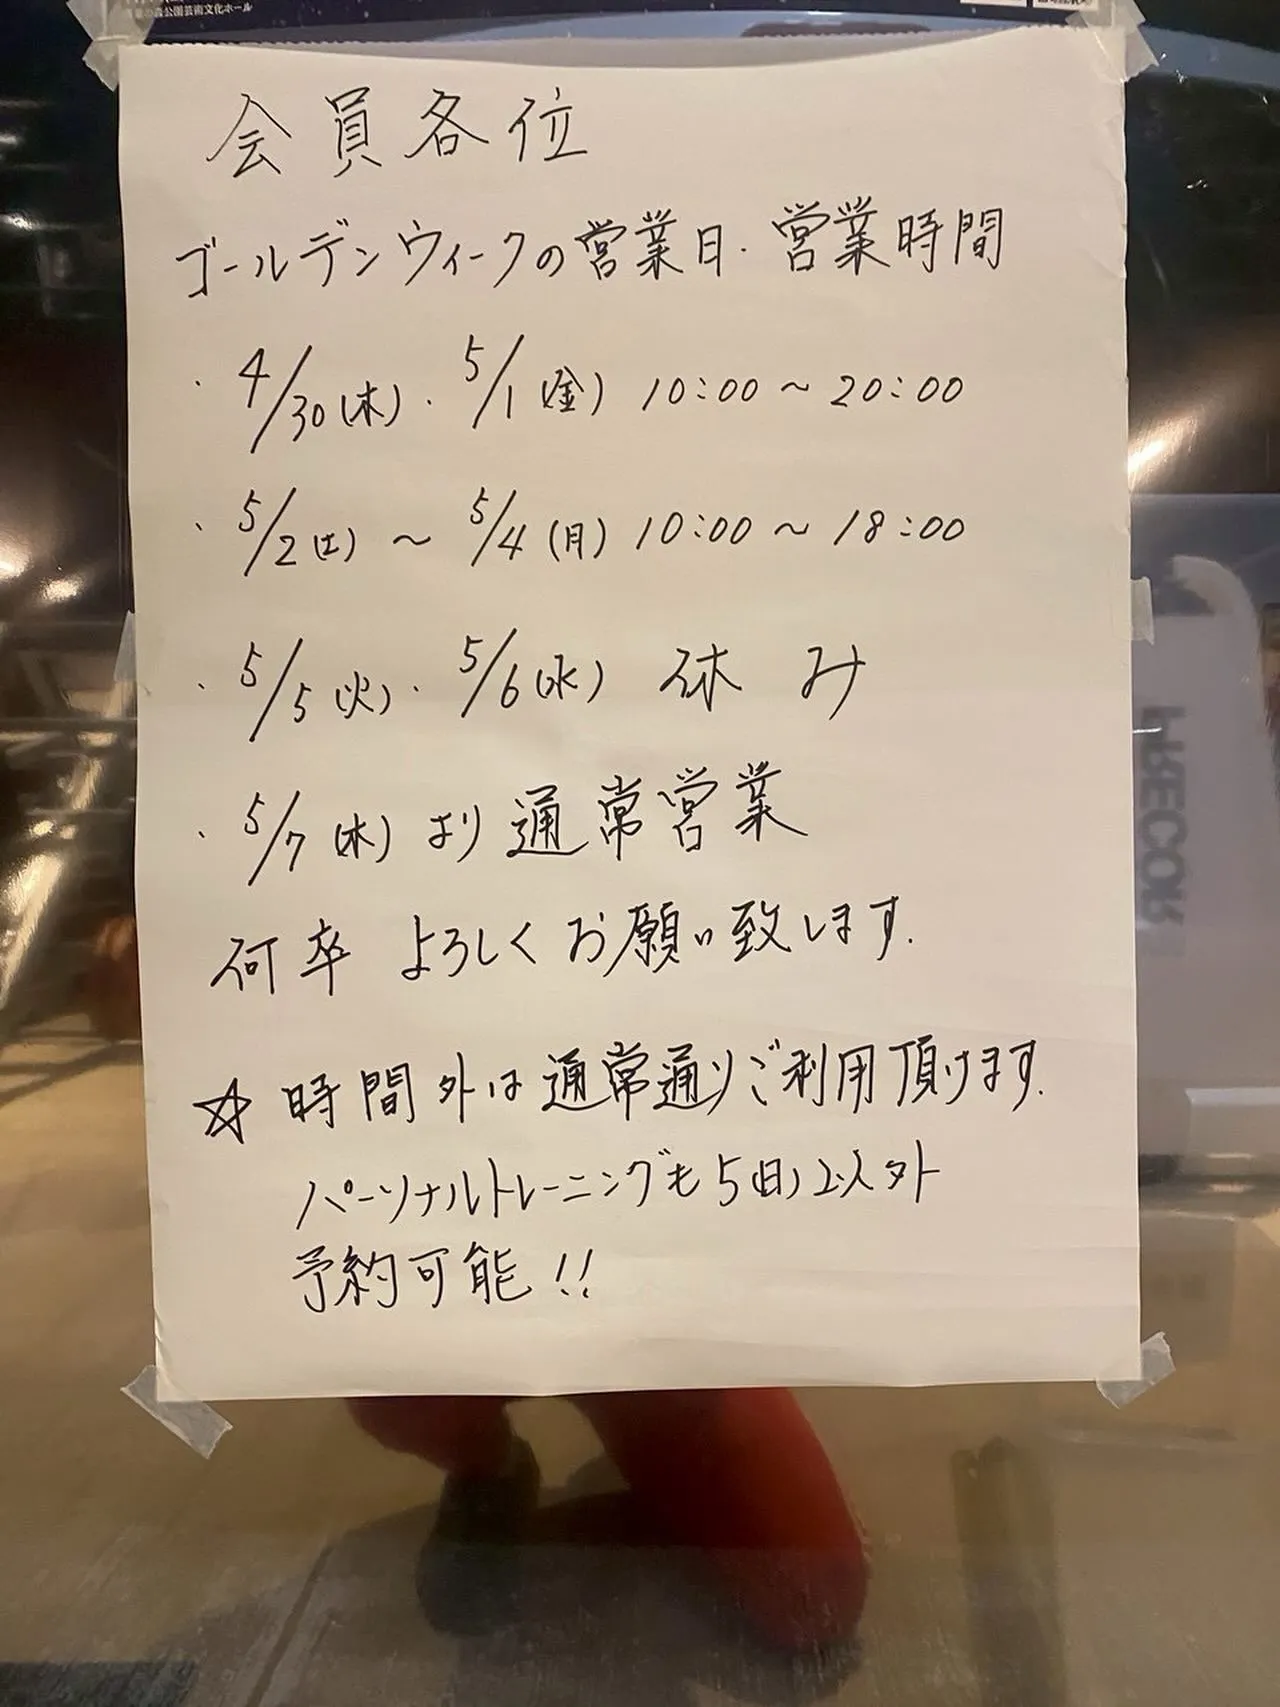 森公園芸術文化ホール
会員各位
ゴールデンウィークの営業日・営業時間
・4/30(木)・5/1(金) 10:00~20:00
・5/2(土)~5/4(月) 10:00~18:00
・5/5(火)・5/6(水) 休み
・5/7(木)より通常営業
何卒 よろしくお願い致します.
☆ 時間外は通常通りご利用頂けます.
パーソナルトレーニングも5(日)以外
予約可能!!
PRECOR